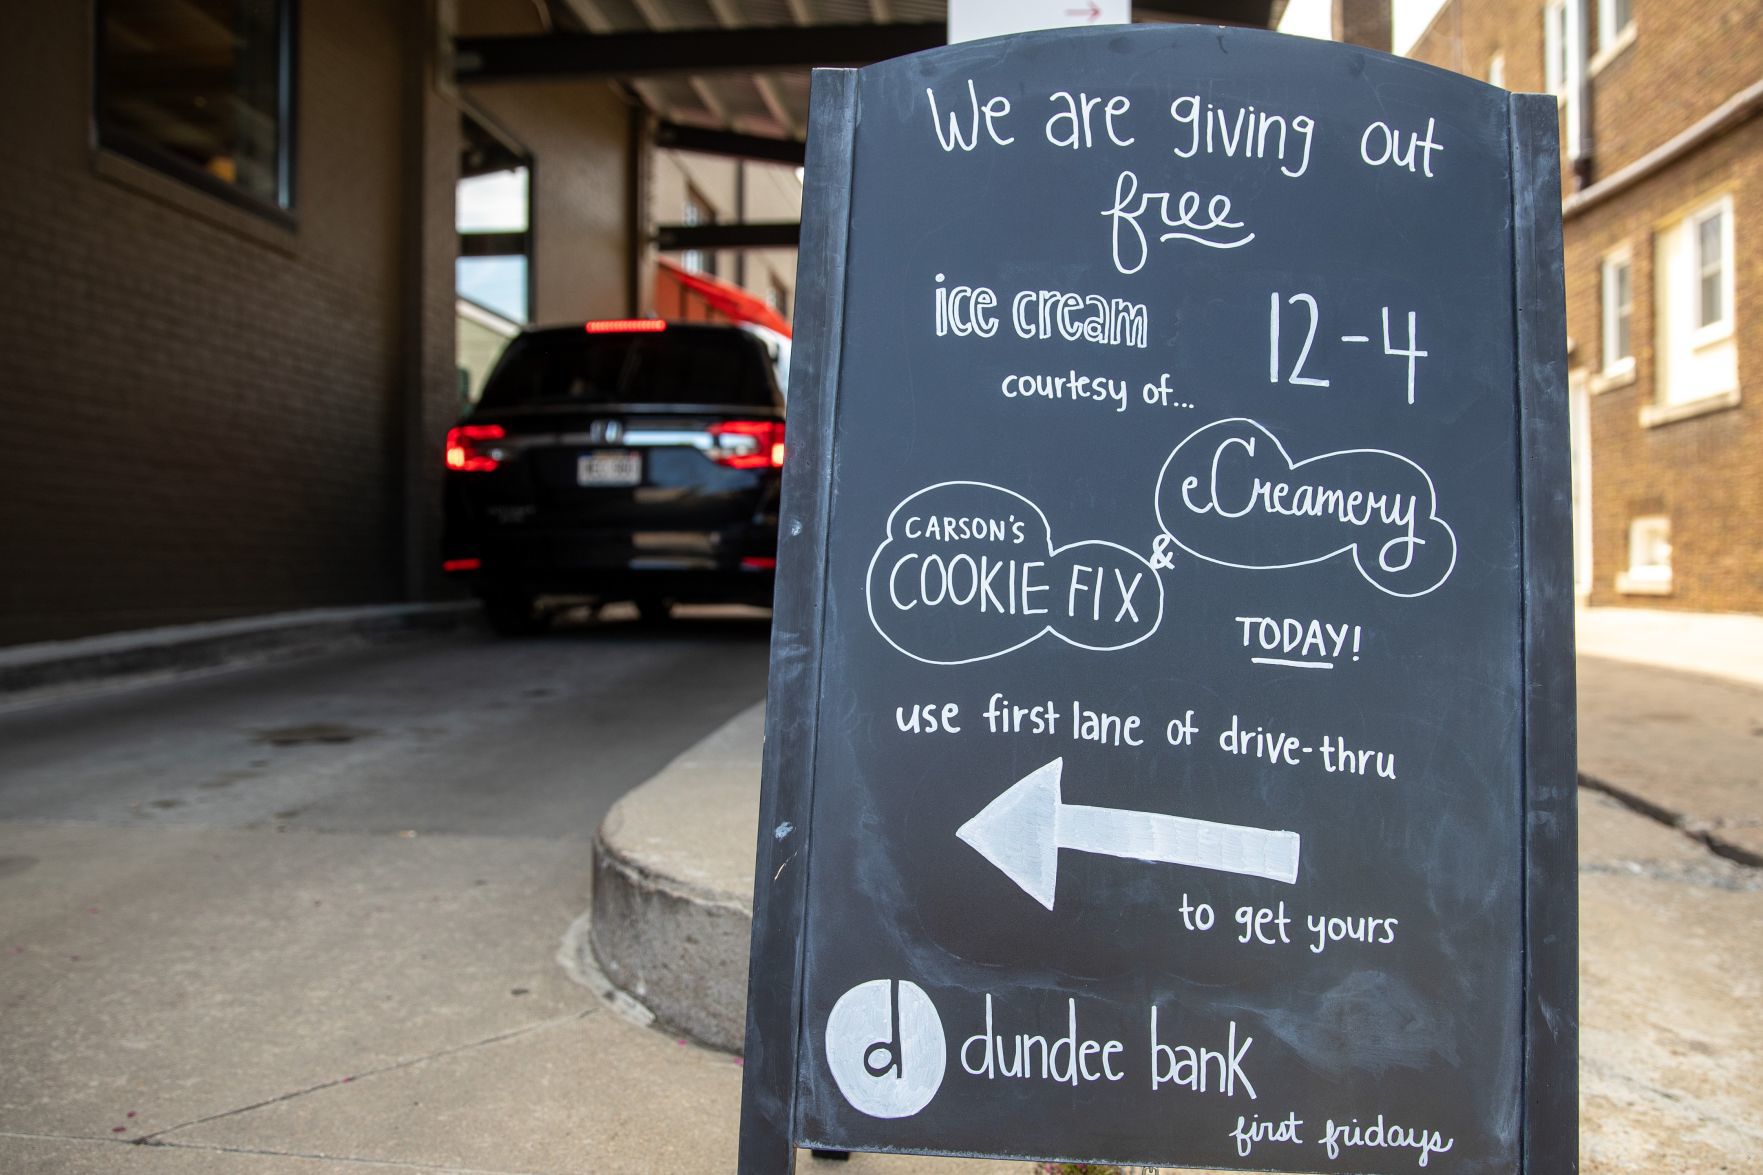 We are giving out
free
ice cream 12-4
courtesy of...
eCreamery
CARSON'S
COOKIE FIX
&
TODAY!
use first lane of drive-thru
to get yours
d dundee bank
first fridays